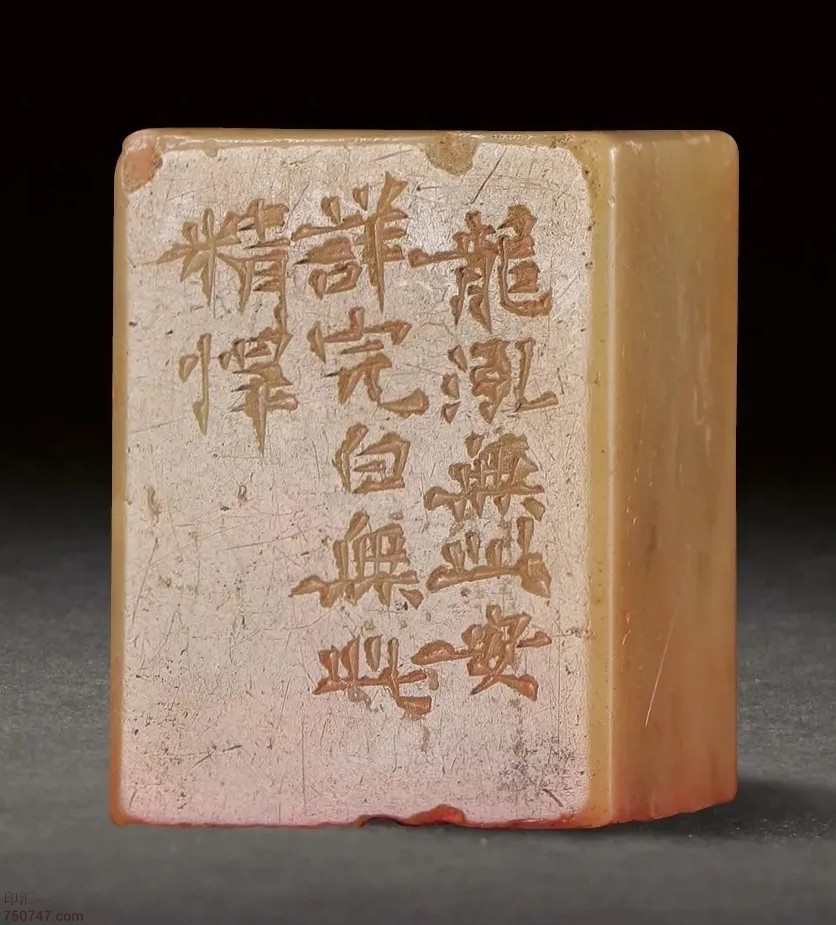 龍泓無此安
詳完白無此
精悍
印汇
750747.com